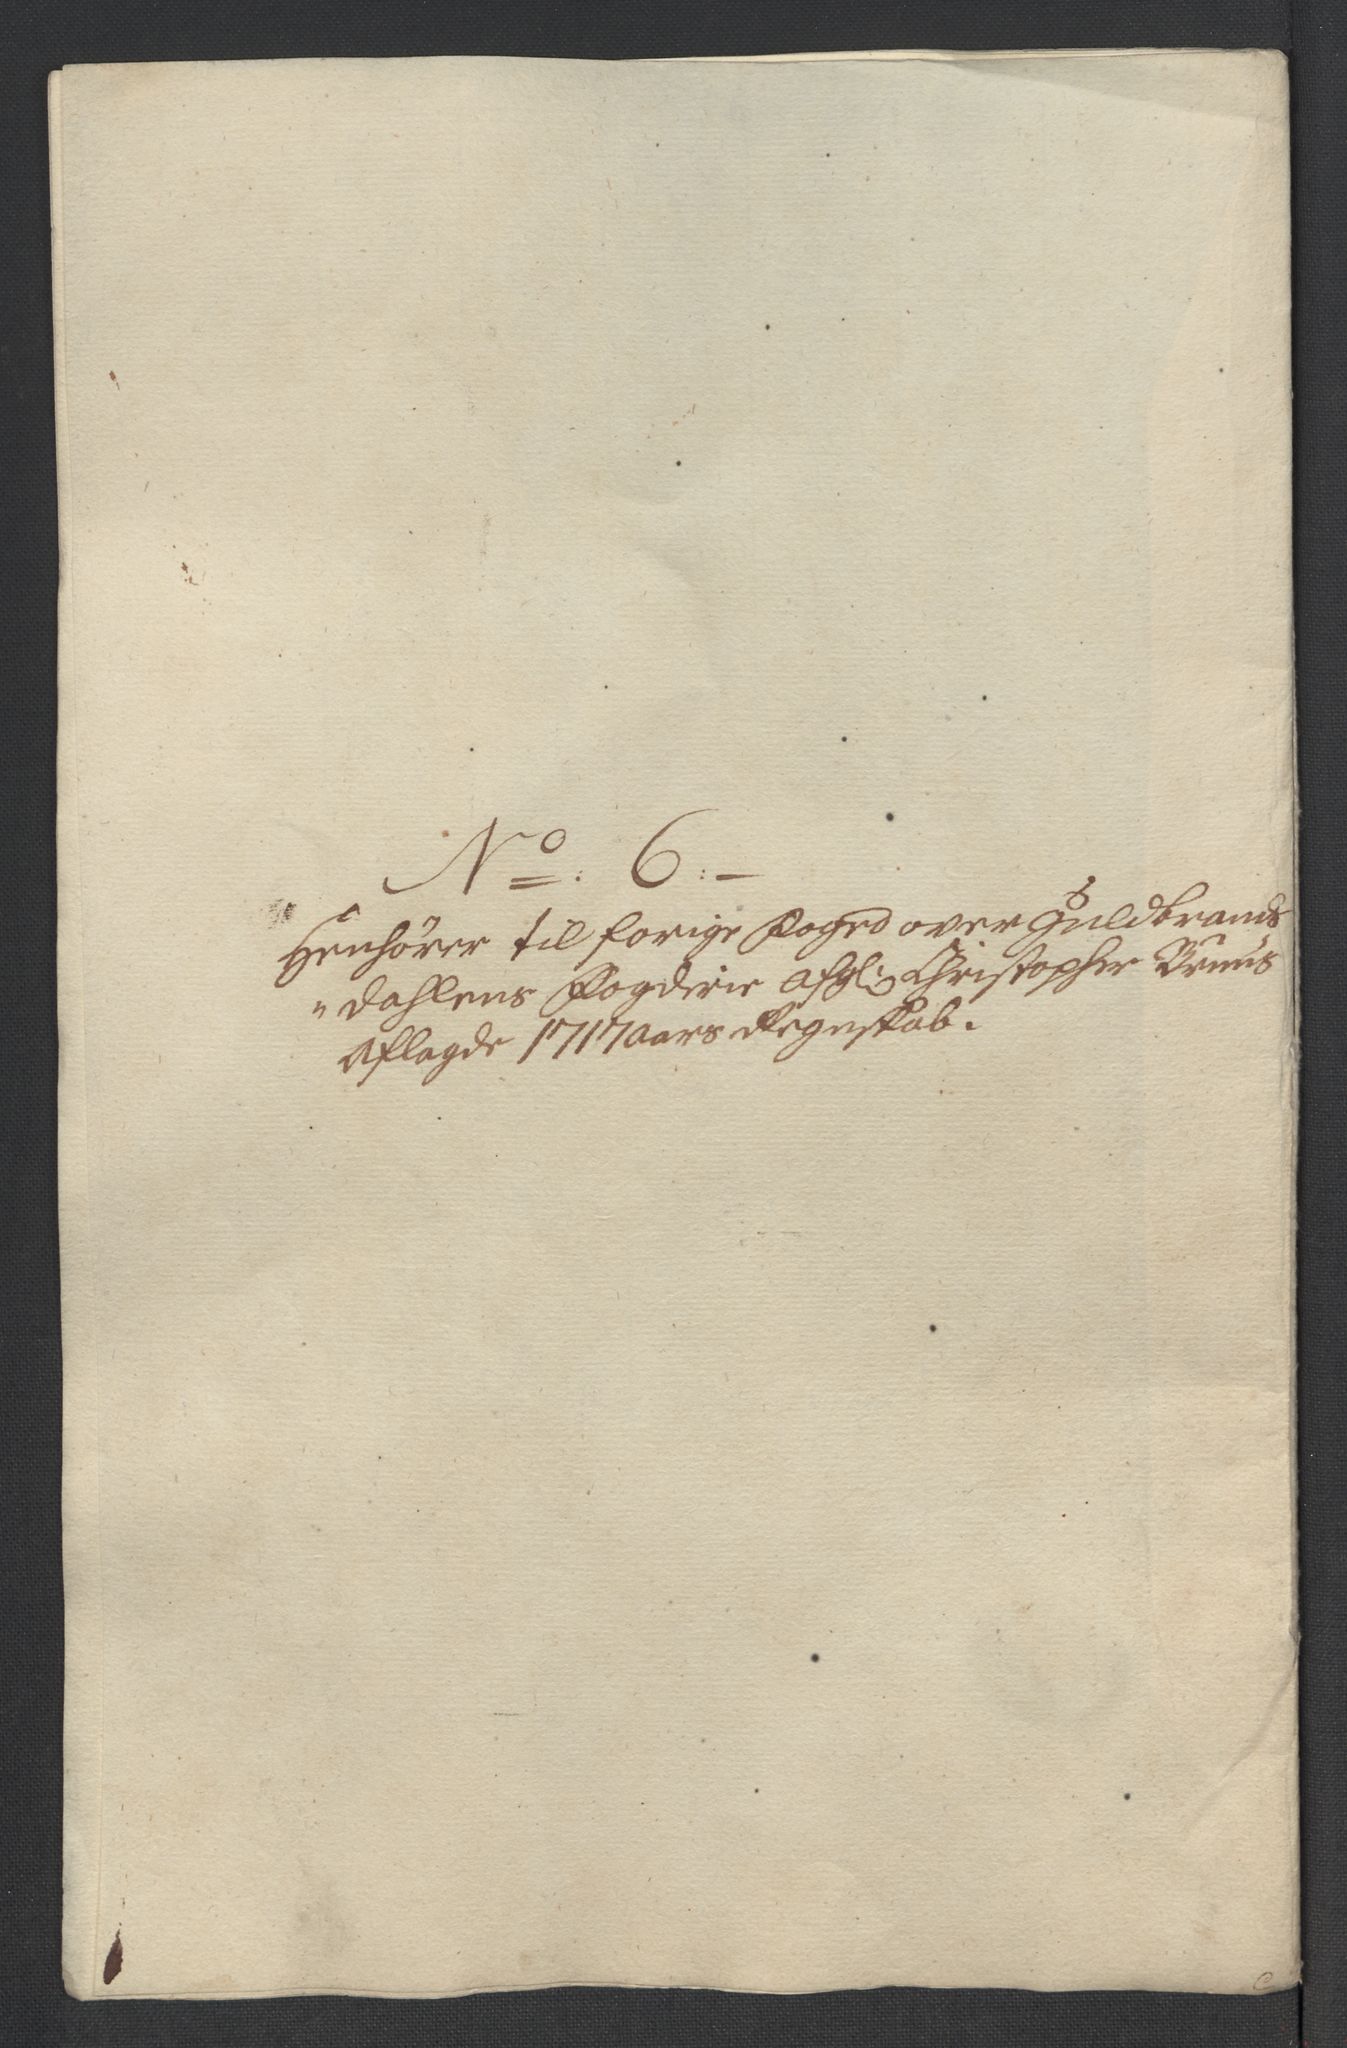 No: 6:-
Henhører til forige Foged over Guldbrands
"dahlens Fogderie afgl: Christopher Bruus
Aflagde 1717 aars Regnskab.